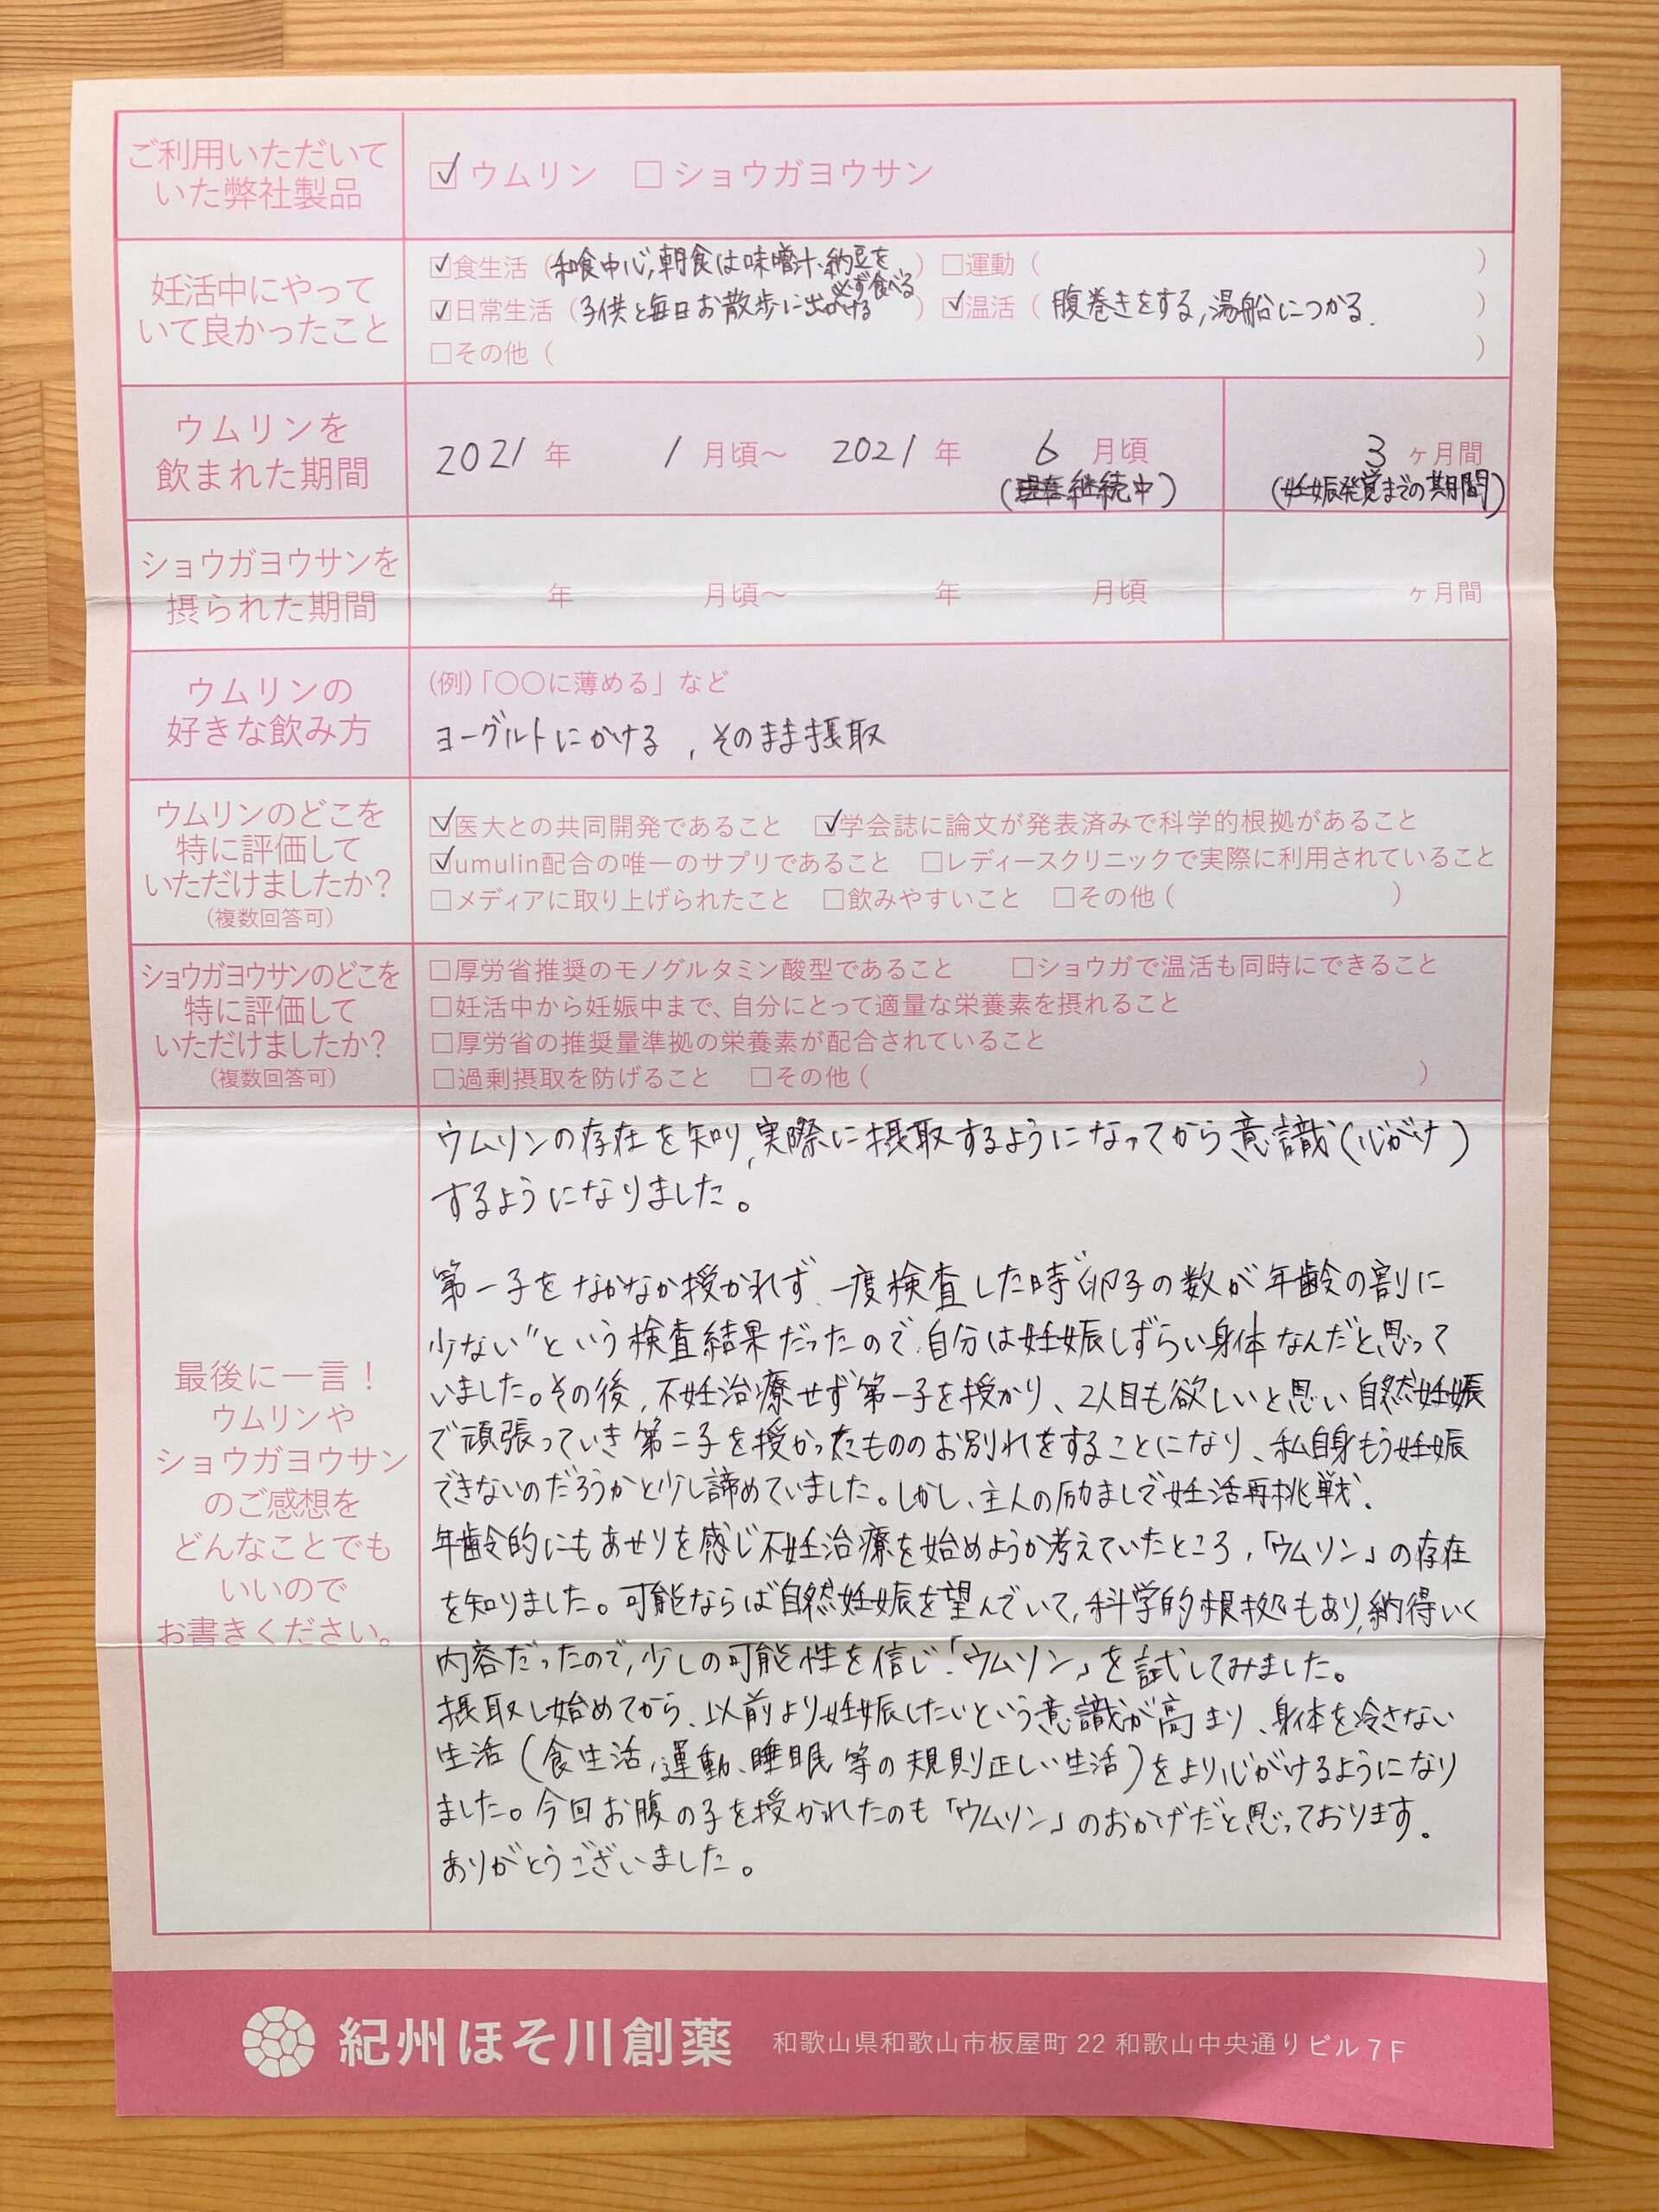 ご利用いただいて
いた弊社製品
☑ウムリン □ショウガヨウサン
妊活中にやって
いて良かったこと
☑食生活（和食中心, 朝食は味噌汁、納豆を必ず食べる）□運動（ ）
☑日常生活（子供と毎日お散歩に出かける）☑温活（腹巻きをする, 湯船につかる.）
□その他（ ）
ウムリンを
飲まれた期間
2021 年 1 月頃～ 2021 年 6 月頃
(現在継続中)
3 ヶ月間
(妊娠発覚までの期間)
ショウガヨウサンを
摂られた期間
年 月頃～ 年 月頃 ヶ月間
ウムリンの
好きな飲み方
(例)「〇〇に薄める」など
ヨーグルトにかける , そのまま摂取
ウムリンのどこを
特に評価して
いただけましたか?
(複数回答可)
☑医大との共同開発であること ☑学会誌に論文が発表済みで科学的根拠があること
☑umulin配合の唯一のサプリであること □レディースクリニックで実際に利用されていること
□メディアに取り上げられたこと □飲みやすいこと □その他（ ）
ショウガヨウサンのどこを
特に評価して
いただけましたか?
(複数回答可)
□厚労省推奨のモノグルタミン酸型であること □ショウガで温活も同時にできること
□妊活中から妊娠中まで、自分にとって適量な栄養素を摂れること
□厚労省の推奨量準拠の栄養素が配合されていること
□過剰摂取を防げること □その他（ ）
最後に一言！
ウムリンや
ショウガヨウサン
のご感想を
どんなことでも
いいので
お書きください。
ウムリンの存在を知り, 実際に摂取するようになってから意識(心がけ)
するようになりました。
第一子をなかなか授かれず、一度検査した時"卵子の数が年齢の割に
少ない"という検査結果だったので、自分は妊娠しずらい身体なんだと思って
いました。その後、不妊治療せず第一子を授かり、2人目も欲しいと思い自然妊娠
で頑張っていき第二子を授かったもののお別れをすることになり、私自身もう妊娠
できないのだろうかと少し諦めていました。しかし、主人の励ましで妊活再挑戦.
年齢的にもあせりを感じ不妊治療を始めようか考えていたところ,「ウムリン」の存在
を知りました。可能ならば自然妊娠を望んでいて, 科学的根拠もあり, 納得いく
内容だったので, 少しの可能性を信じ「ウムリン」を試してみました。
摂取し始めてから、以前より妊娠したいという意識が高まり、身体を冷さない
生活(食生活, 運動、睡眠等の規則正しい生活)をより心がけるようになり
ました。今回お腹の子を授かれたのも「ウムリン」のおかげだと思っております.
ありがとうございました。
紀州ほそ川創薬 和歌山県和歌山市板屋町 22 和歌山中央通りビル 7F